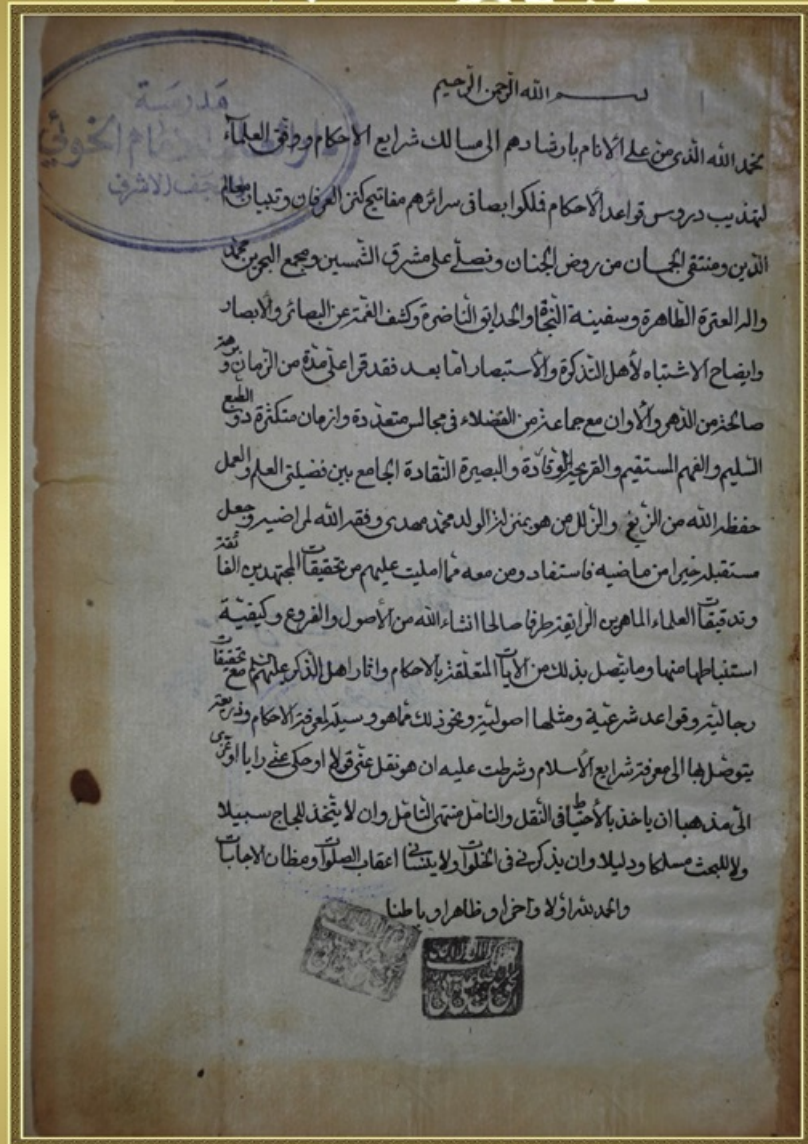 مدرسة
دار العلم للامام الخوئي
النجف الاشرف
بسم الله الرحمن الرحيم
نحمد الله الذي من على الانام بارشادهم الى مسالك شرايع الاحكام ووفق العلماء
لتهذيب دروس قواعد الاحكام فملكوا بصافي سرائرهم مفاتيح كنز العرفان وتبيان معالم
الدين ومنتقى الجمان من روض الجنان ونصلي على مشرق الشمسين ومجمع البحرين محمد
واله العترة الطاهرة وسفينة النجاة والحدايق الناضرة وكشف الغمة عن البصائر والابصار
وايضاح الاشتباه لأهل التذكرة والأستبصار اما بعد فقد قرا على مدة من الزمان وبرهة
صالحة من الدهر والأوان مع جماعة من الفضلاء في مجالس متعددة وازمان متكثرة ذو الطبع
السليم والفهم المستقيم والقريحة الوقادة والبصيرة النقادة الجامع بين فضيلتي العلم والعمل
حفظه الله من الزيغ والزلل من هو بمنزلة الولد محمد مهدي وفقه الله لمراضيه وجعل
مستقبله خيرا من ماضيه فاستفاد ومن معه مما امليت عليهم من تحقيقات المجتهدين الفائقة
وتدقيقات العلماء الماهرين الرايقة طرفا صالحا انشاء الله من الأصول والفروع وكيفية
استنباطها منها وما يتصل بذلك من الآيات المتعلقة بالاحكام واثار اهل الذكر عليهم مع تحقيقات
رجالية وقواعد شرعية ومثلها اصولية ونحو ذلك مما هو وسيلة لمعرفة الاحكام وذريعة
يتوصل بها الى معرفة شرايع الأسلام وشرطت عليه ان هو نقل عني قولا او حكى عني رايا او عزى
الى مذهبا ان ياخذ بالأحتياط في النقل والتامل منتهى التامل وان لا يتخذ للجاج سبيلا
ولا للبحث مسلكا ودليلا وان يذكرني في الخلوات ولا ينساني اعقاب الصلوات ومظان الاجابات
والحمد لله اولا واخرا وظاهرا وباطنا